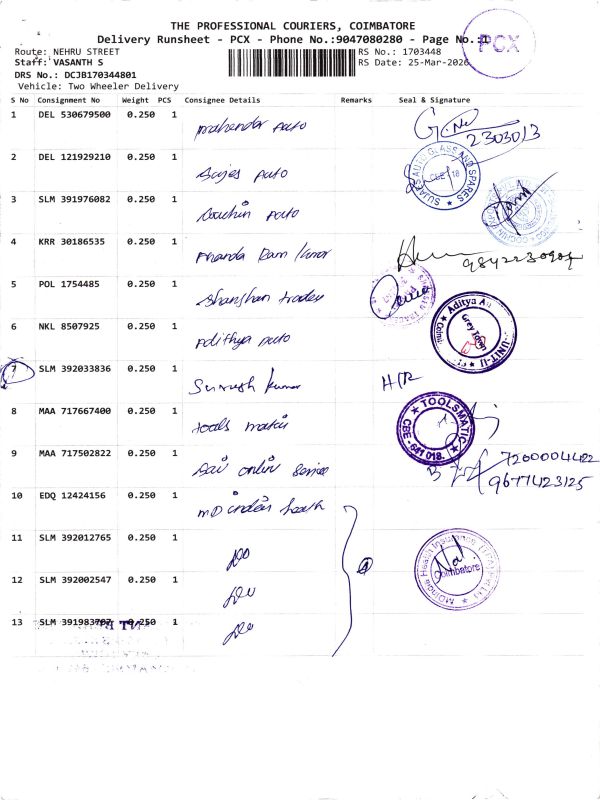 THE PROFESSIONAL COURIERS, COIMBATORE
Delivery Runsheet - PCX - Phone No.:9047080280 - Page No.:1
PCX
Route: NEHRU STREET
RS No.: 1703448
Staff: VASANTH S
RS Date: 25-Mar-2026
DRS No.: DCJB170344801
Vehicle: Two Wheeler Delivery
S No Consignment No Weight PCS Consignee Details Remarks Seal & Signature
1 DEL 530679500 0.250 1 mahendar auto
2303013
2 DEL 121929210 0.250 1 Sujes auto
SUJAES AUTO GLASS AND SPARES
3 SLM 391976082 0.250 1 Cauchin auto
4 KRR 30186535 0.250 1 Ananda Ram
5 POL 1754485 0.250 1 Shanghan
6 NKL 8507925 0.250 1 Adithya auto
Aditya Au
Grey Town
UNIT-II
7 SLM 392033836 0.250 1 Suresh Kumar
H/R
8 MAA 717667400 0.250 1 tools matic
TOOLSMATIC
CBE - 641 018.
9 MAA 717502822 0.250 1 Sai online service
7200004422
9677423125
10 EDQ 12424156 0.250 1 MD India health
11 SLM 392012765 0.250 1 Do
4
MDIndia Health Insurance (TPA) Pvt Ltd
Coimbatore
12 SLM 392002547 0.250 1 Do
13 SLM 391983707 0.250 1 Do